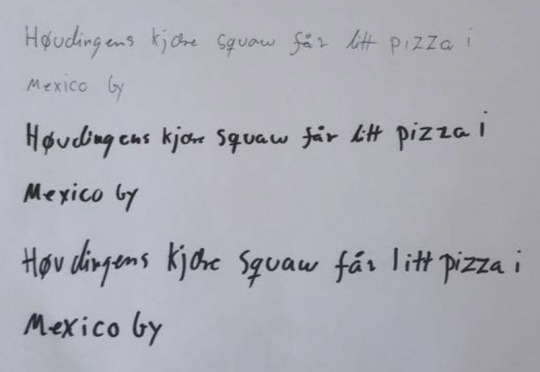 Høvdingens kjære squaw får litt pizza i
Mexico by
Høvdingens kjære squaw får litt pizza i
Mexico by
Høvdingens kjære squaw får litt pizza i
Mexico by